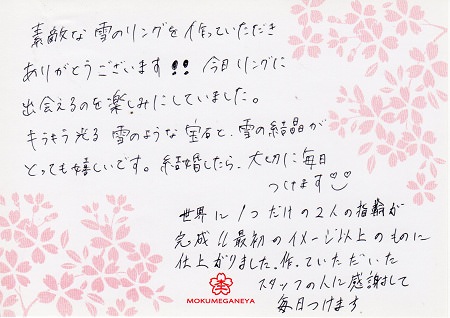 素敵な雪のリングを作っていただき
ありがとうございます!! 今日リングに
出会えるのを楽しみにしていました。
キラキラ光る雪のような宝石と、雪の結晶が
とっても嬉しいです。結婚したら、大切に毎日
つけます
世界に1つだけの2人の指輪が
完成し最初のイメージ以上のものに
仕上がりました。作っていただいた
スタッフの人に感謝して
毎日つけます
MOKUMEGANEYA